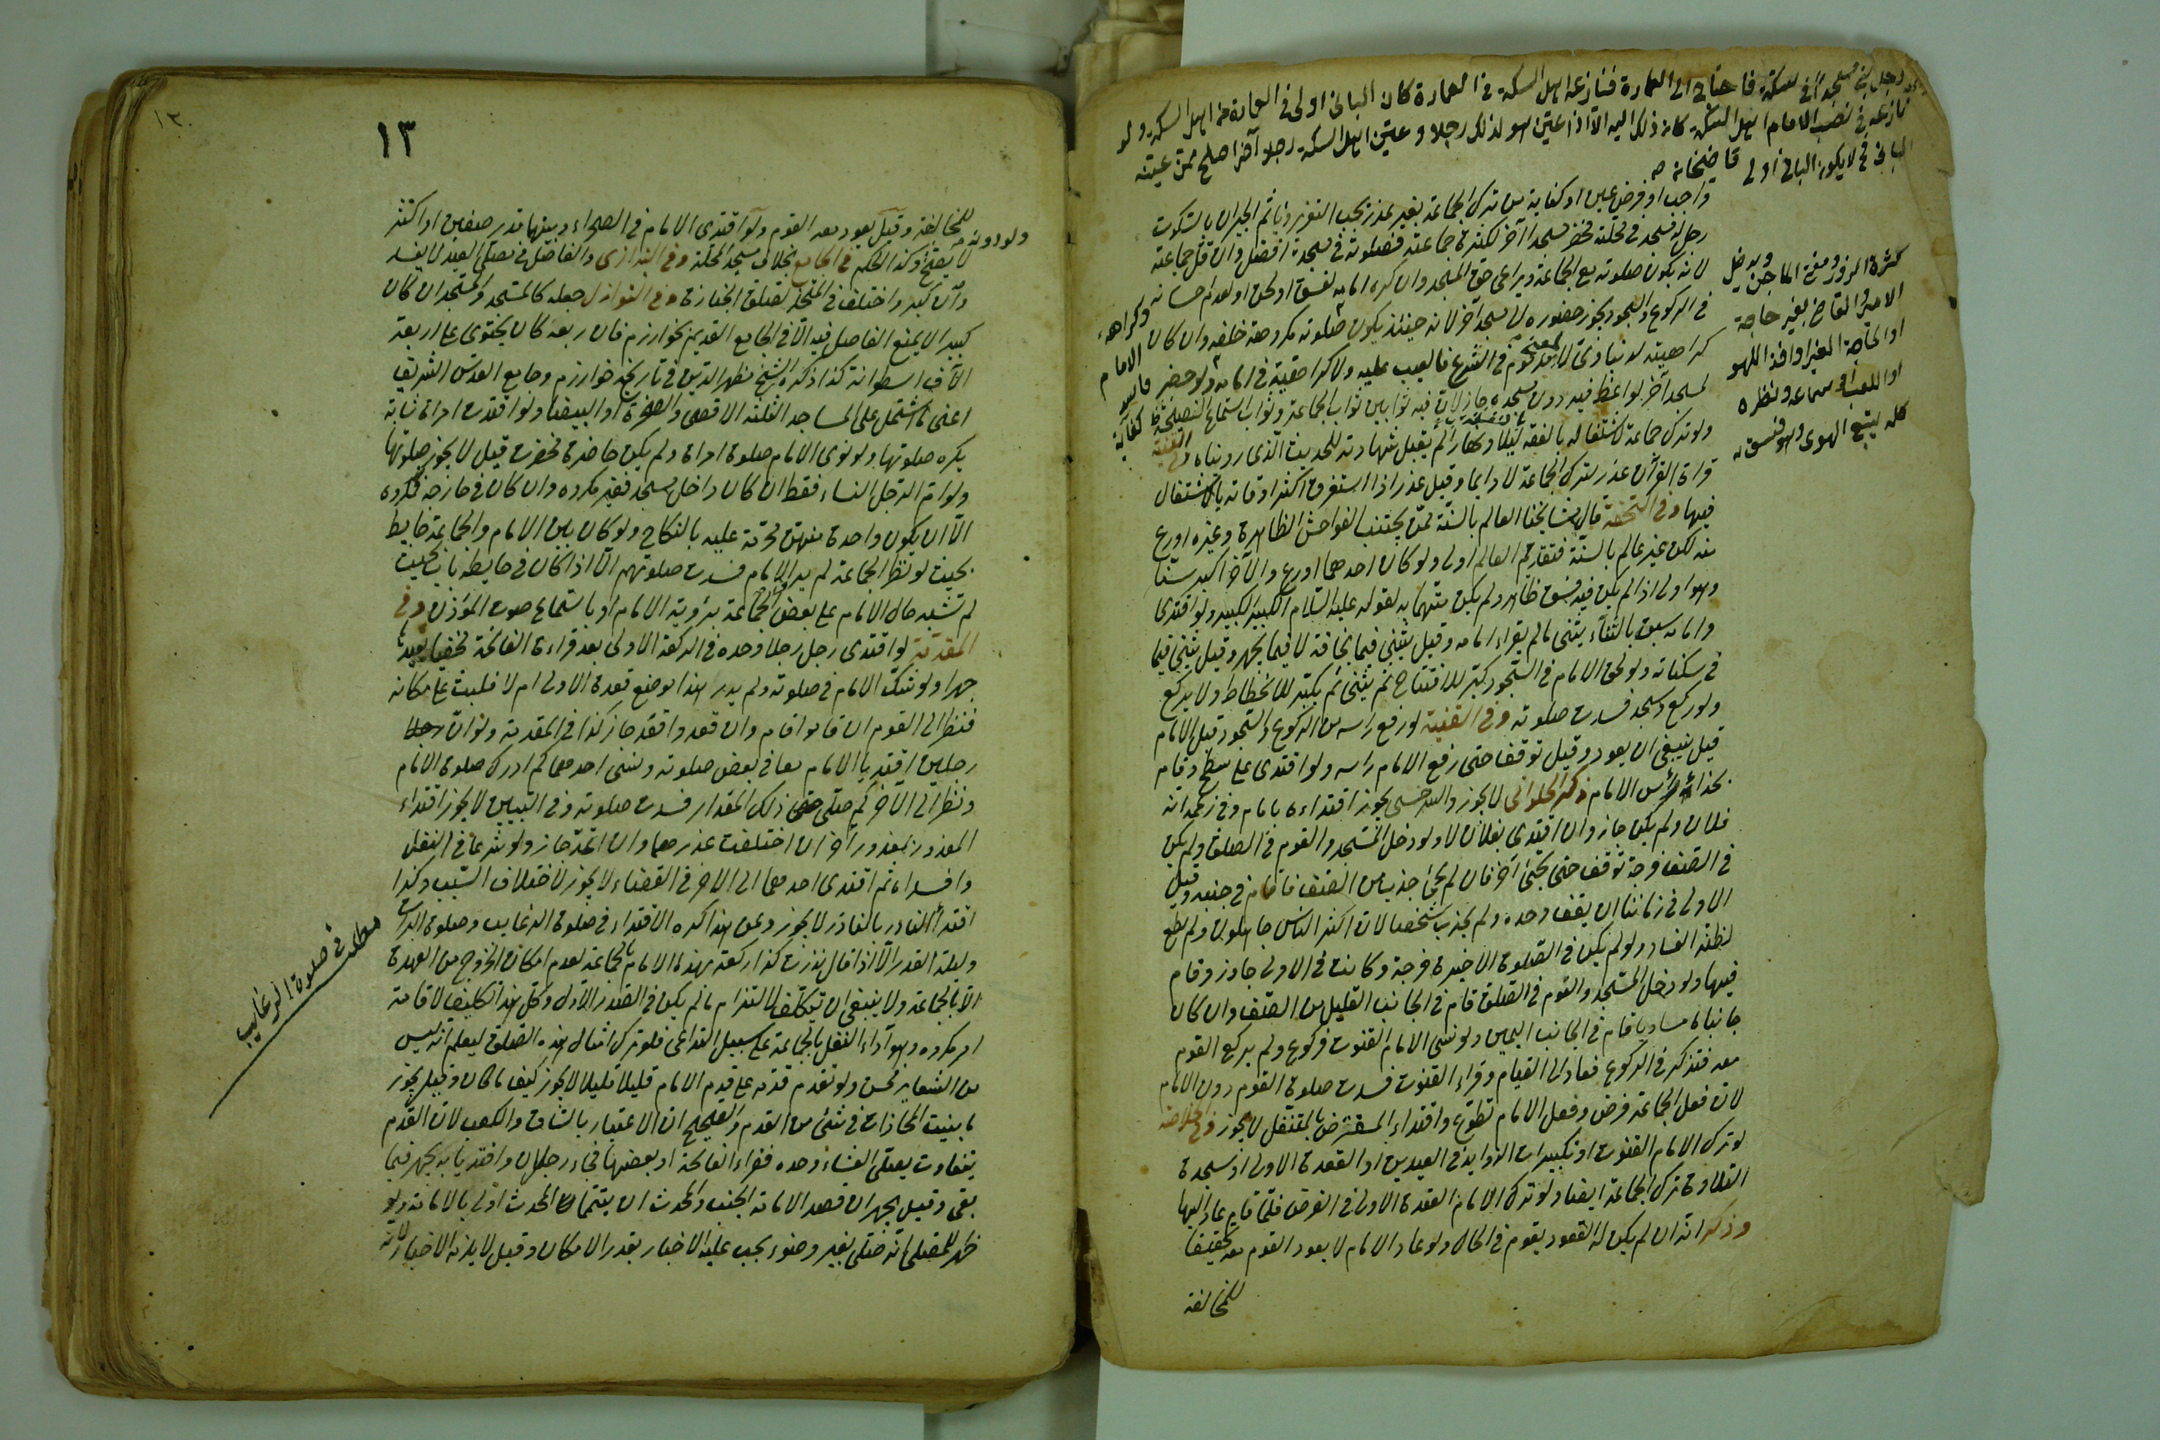 رجل بنى مسجدا في سكة فاحتاج الى العمارة فنازعه اهل السكة في العمارة كان البانى اولى في العمارة من اهل السكة ولو
نازعه في نصب الامام اهل السكة كان ذلك اليه الا اذا عين هو لذلك رجلا وعين اهل السكة رجلا آخر اصلح ممن عينه
البانى فح لا يكون البانى اولى قاضيخان
واجب او فرض عين او كفاية من ترك الجماعة بغير عذر يجب التعزير ويأثم الجيران بالسكوت
رجل له مسجد في محلته فحضر مسجدا آخر لكثرة جماعته فصلوته في مسجده افضل وان قل جماعته
لانه يكون صلوته مع الجماعة ويراعى حق المسجد وان كره امامه لفسق او لحن او لعدم احسانه
في الركوع والسجود يجوز حضوره الى مسجد آخر لانه حينئذ يكون صلوته مكروهة خلفه وان كان
كراهيته لدنياوى لا لمعنى مذموم في الشرع فالعيب عليه ولا كراهية في امامه ولو حضر
لمسجد آخر لواعظ فيه دون مسجده جاز لان فيه ثوابين ثواب الجماعة وثواب استماع النصيحة
ولو ترك جماعة لاشتغاله بالفقه ليلا ونهارا لم يقبل شهادته للحديث الذى رويناه وفي القنية
قراءة القرآن عذر لترك الجماعة لا دايما وقيل عذر اذا استغرق اكثر اوقاته بالاشتغال
فيها وفي التحفة قال مشايخنا العالم بالسنة ممن يجتنب الفواحش الظاهرة وغيره اورع
منه لكن غير عالم بالسنة فتقديم العالم اولى ولو كان احدهما اورع والآخر اكبر سنا
وهو اولى اذا لم يكن فيه فسق ظاهر ولم يكن متهما به لقوله عليه السلام الكبير الكبير ولو اقتدى
وامامه سبق بالثناء يثنى ما لم يقراء امامه وقيل يثنى فيما يخافت لا فيما يجهر وقيل يثنى فيما
في سكتاته ولو لحق الامام في السجود كبر للافتتاح ثم يثنى ثم يكبر للانحطاط ولا يركع
ولو ركع وسجد فسدت صلوته وفي القنية لو رفع راسه من الركوع والسجود قبل الامام
قيل ينبغى ان يعود وقيل توقف حتى رفع الامام راسه ولو اقتدى على سطح وقام
بحذاء رأس الامام ذكر الحلوانى لا يجوز والسرخسى يجوز اقتداءه بامام وفي زعمه انه
فلان ولم يكن جاز وان اقتدى بفلان لا ولو دخل المسجد والقوم في الصلوة ولم يكن
في الصف فرجة توقف حتى يجئ آخر فان لم يجئ جذب من الصف فاقام في جنبه وقيل
الاولى في زماننا ان يقف وحده ولم يجذب شخصا لان اكثر الناس جاهلون ولم يطع
لظنه الفساد ولو لم يكن في الصلوة الاخيرة فرجة وكانت في الاولى جاوز وقام
فيها ولو دخل المسجد والقوم في الصلوة قام في الجانب القليل من الصف وان كان
جانباه مساويا قام في الجانب اليمين ولو نسى الامام القنوت فركوع ولم يركع القوم
معه فتذكر في الركوع فعاد الى القيام وقراء القنوت فسدت صلوة القوم دون الامام
لان فعل الجماعة فرض وفعل الامام تطوع واقتداء المفترض بالمتنفل لا يجوز وفي الخلاصة
لو ترك الامام القنوت او تكبيرات الزوايد في العيدين او القعدة الاولى او سجدة
التلاوة ترك الجماعة ايضا ولو ترك الامام القعدة الاولى في الفرض فلما قام عاد اليها
وذكر انه ان لم يكن له القعود يقوم في الحال ولو عاد الامام لا يعود القوم معه تحقيقا
للمخالفة
الامر والقاضى بغير حاجة
كله يتبع الهوى وهو فسق
١٣
للمخالفة وقيل يعود معه القوم ولو اقتدى الامام في الصحراء وبينهما قدر صفين او اكثر
لا يصح وكذا الحكم في الجامع بخلاف مسجد المحلة وفي البزازى والفاصل في مصلى العيد لا يفسد
وان كبر واختلف في المتخذ لصلوة الجنازة وفي النوازل جعله كالمسجد والمسجد ان كان
كبيرا لا يمنع الفاصل فيه الا في الجامع القديم بخوارزم فان ربعه كان يحتوى على اربعة
الآف اسطوانة كذا ذكره الشيخ مظهر الدين في تاريخ خوارزم وجامع القدس الشريف
اعنى ما اشتمل على المساجد الثلثة الاقصى والصخرة والبيضا ولو اقتدت امراة شابة
يكره صلوتها ولو نوى الامام صلوة امراة ولم يكن حاضرة فحضرت قيل لا يجوز صلوتها
ولو ام الرجل النساء فقط ان كان داخل مسجد فغير مكروه وان كان في خارجه فمكروه
الا ان يكون واحدة منهن محرمة عليه بالنكاح ولو كان بين الامام والجماعة حايط
بحيث لو نظر الجماعة لم ير الامام فسدت صلوتهم الا اذا كان في حايطه باب بحيث
لم تشبه حال الامام على بعض الجماعة برؤية الامام او باستماع صوت المؤذن وفي
المقدمة لو اقتدى رجل رجلا وحده في الركعة الاولى بعد قراءة الفاتحة مخفيا يعيدها
جهرا ولو شك الامام في صلوته ولم يدر هذا موضع قعدة الاولى ام لا فلبث على مكانه
فنظر الى القوم ان قاموا قام وان قعدوا قعد جاز كذا في المقدمة ولو ان
رجلين اقتديا الامام معا في بعض صلوته ونسى احدهما كم ادرك صلوة الامام
ونظر الى الآخر كم صلى حتى ذلك المقدار فسدت صلوته وفي التبيين لا يجوز اقتداء
المعذور بمعذور آخر ان اختلفت عذرهما وان اتحد جاز ولو شرعا في النفل
وافسداه ثم اقتدى احدهما الى الآخر في القضاء لا يجوز لاختلاف السبب وكذا
اقتداء الناذر بالناذر لا يجوز وعن هذا كره الاقتداء في صلوة الرغايب وصلوة البرات
وليلة القدر الا اذا قال نذرت كذا ركعة بهذا الامام بالجماعة لعدم امكان الخروج من العهدة
الا بالجماعة ولا ينبغى ان يتكلف لالتزام ما لم يكن في الصدر الاول وكل هذا التكليف لاقامة
امر مكروه وهو اداء النفل بالجماعة على سبيل التداعى فلو ترك امثال هذه الصلوة ليعلم انه ليس
من الشعاير فحسن ولو تقدم قدمه على قدم الامام قليلا قليلا لا يجوز كيف ما كان وقيل يجوز
ما بقيت المحاذات في شئ من القدم والصحيح ان الاعتبار بالساق والكعب لان القدم
يتفاوت يصلى العشاء وحده فقراء الفاتحة او بعضها فجاء رجلان واقتديا به يجهر فيما
بقى وقيل يجهر ان قصد الامامة الجنب والمحدث ان يتيمما المحدث اولى بالامامة ولو
ظهر للمصلى انه صلى بغير وضوء يجب عليه الاخبار بقدر الامكان وقيل لا يلزمه الاخبار لانه
مطلب في صلوة الرغايب